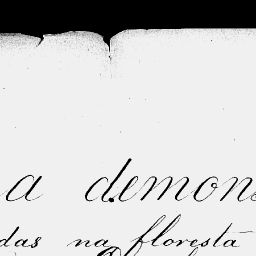 a demons
das na floresta